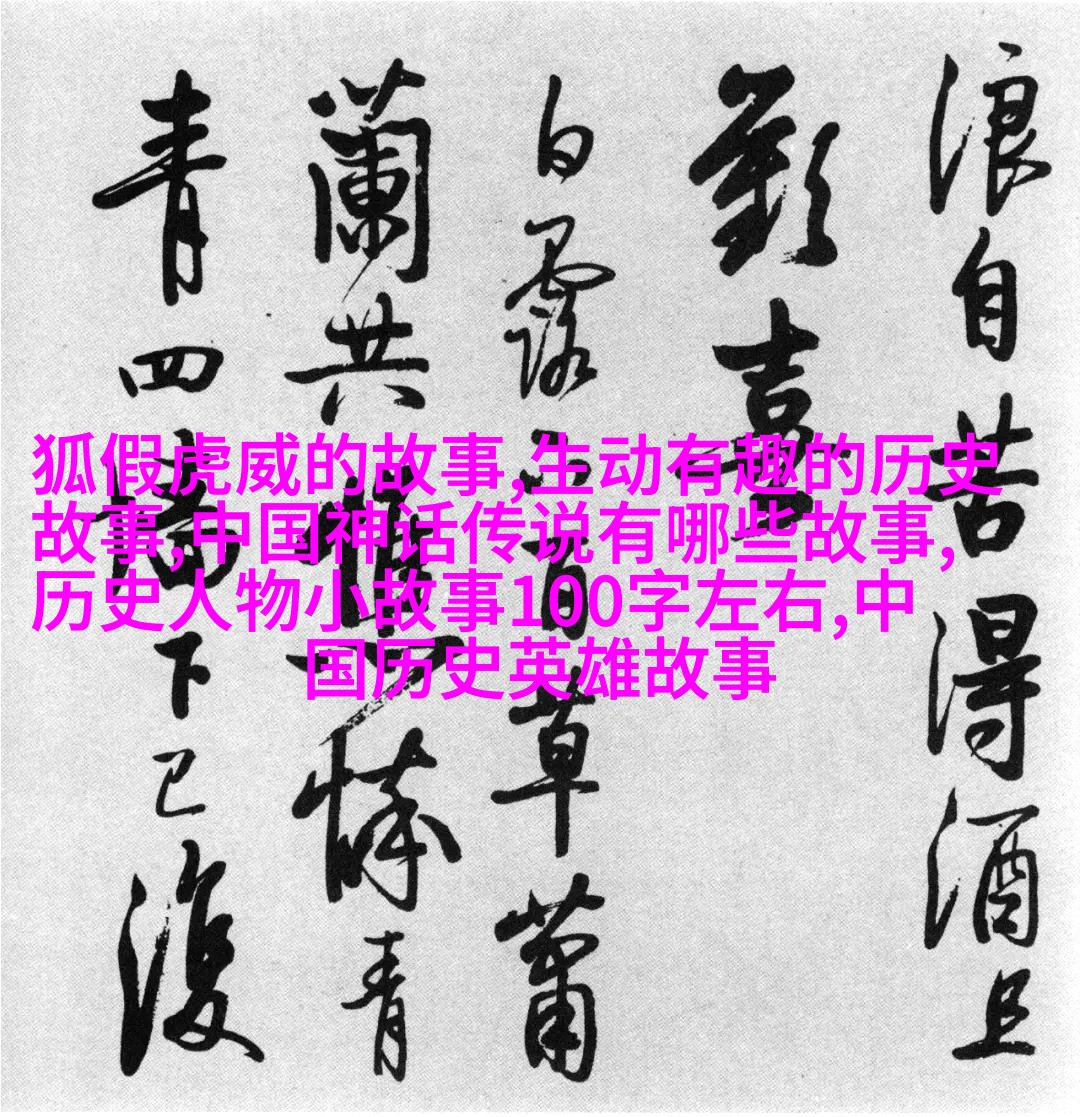 浪自苦得酒且
歡喜
白露下百草蕭
蘭共悴青
青四墻下已復
狐假虎威的故事,生动有趣的历史
故事,中国神话传说有哪些故事,
历史人物小故事100字左右,中
国历史英雄故事